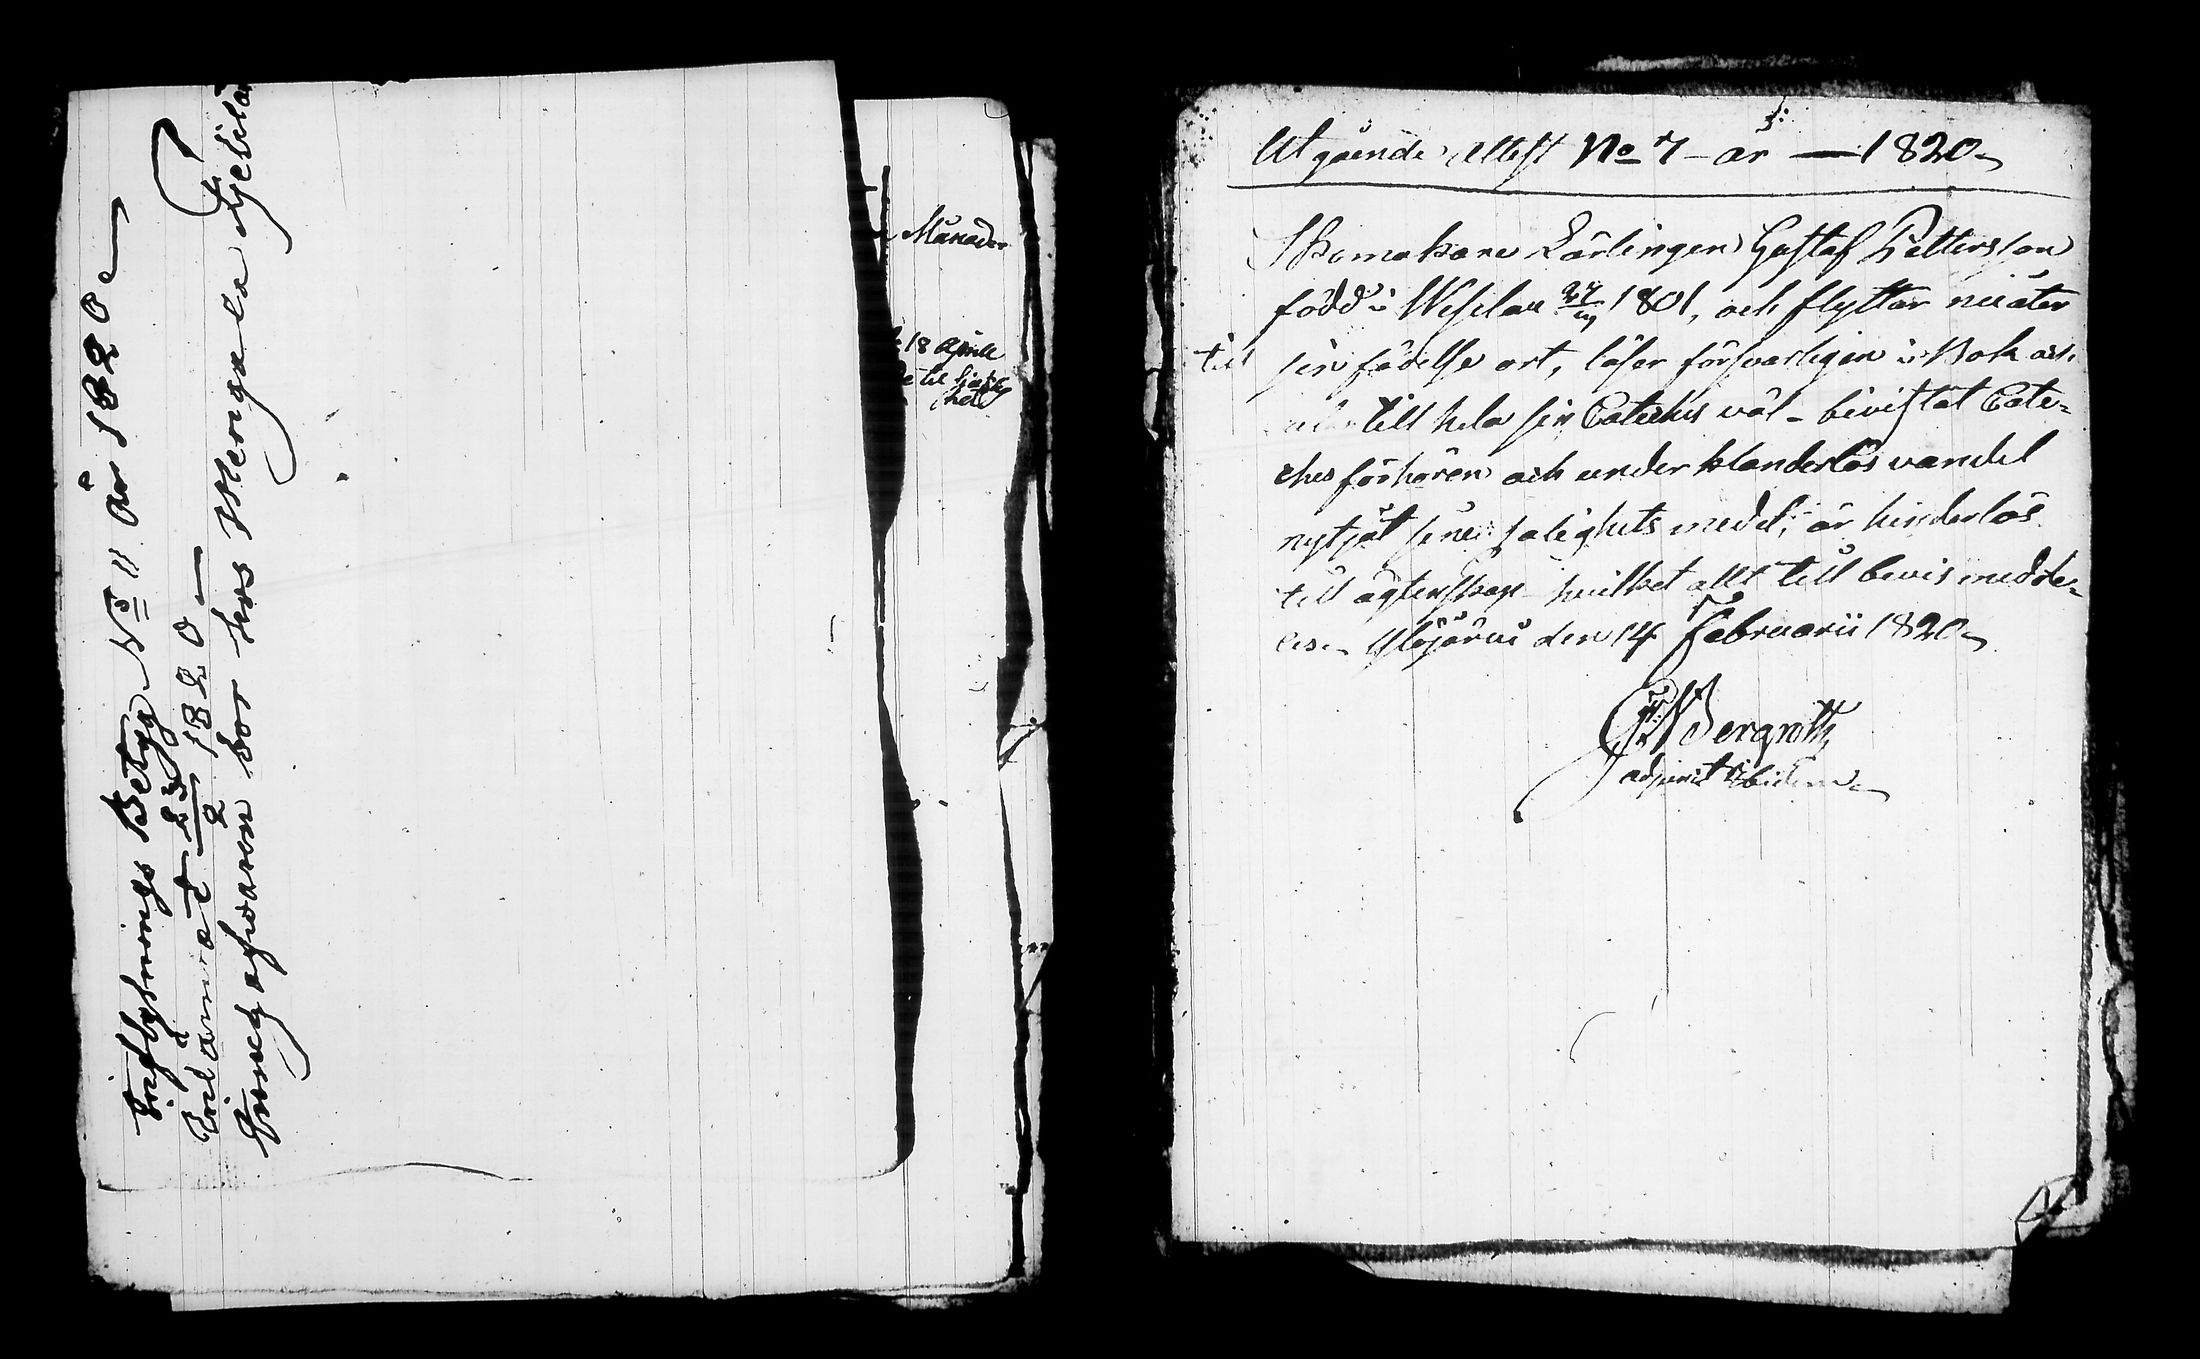 Inflyttnings Betyg N:o 11 år 1820
Inlämnat 23/2 1820
hos Mengala
Månader
18 Aprill
til
Utgående Attest No 7 - år - 1820
Skomakare Lärlingen Gustaf Pettersson
född i Wesilax 24/9 1801, och flyttar nu åter
till sin födelse ort, läser försvarligen i Bok och
till hela sin Cateches väl - bevistat Cate-
ches förhören och under klanderlös vandel
nytjat sine salighets medel, är hinderlös
till ägtenskap hvilket allt till bevis medde-
les. Ylöjärvi den 14 Februarii 1820
Bergroth
adjunct ibidem